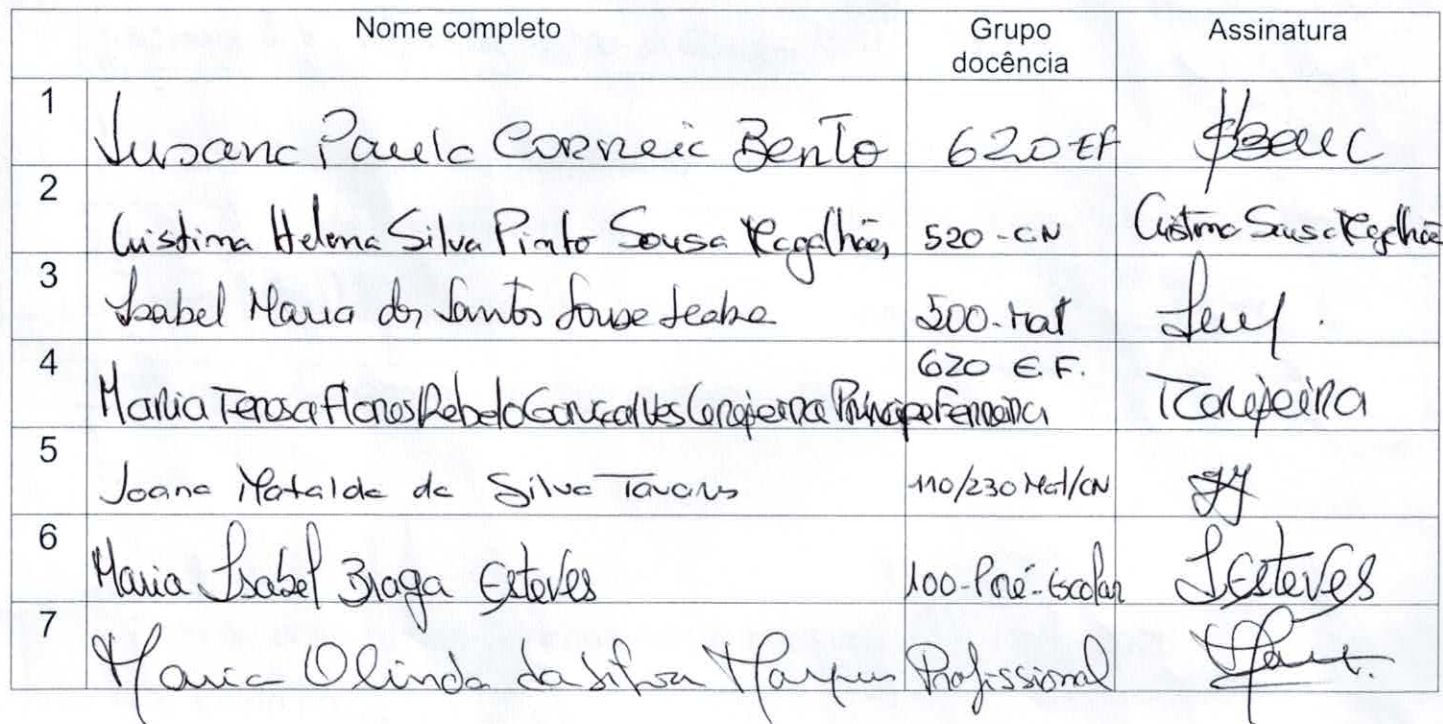 Nome completo Grupo docência Assinatura
1 Susana Paula Correia Bento 620 EF
2 Cristina Helena Silva Pinto Sousa Magalhães 520 - CN Cristina Sousa Magalhães
3 Isabel Maria dos Santos Sousa Seabra 500 - Mat
4 Maria Teresa Rebelo Gonçalves Cerejeira Príncipe Ferreira 620 E.F. TCerejeira
5 Joana Mafalda da Silva Tavares 110/230 Mat/CN
6 Maria Isabel Braga Esteves 100 - Pré-Escolar IEsteves
7 Maria Olinda da Silva Marques Profissional